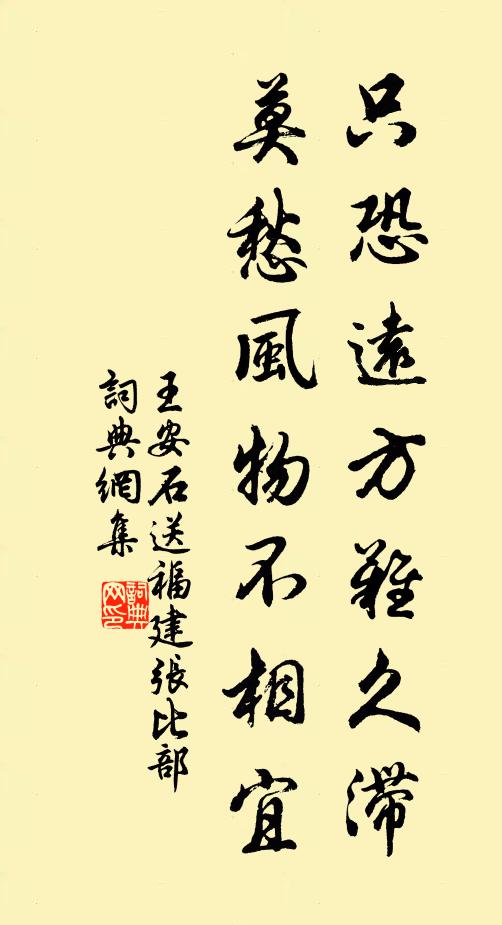 只恐遠方難久滯
莫愁風物不相宜
王安石送福建張比部
詞典網集
詞典
网印